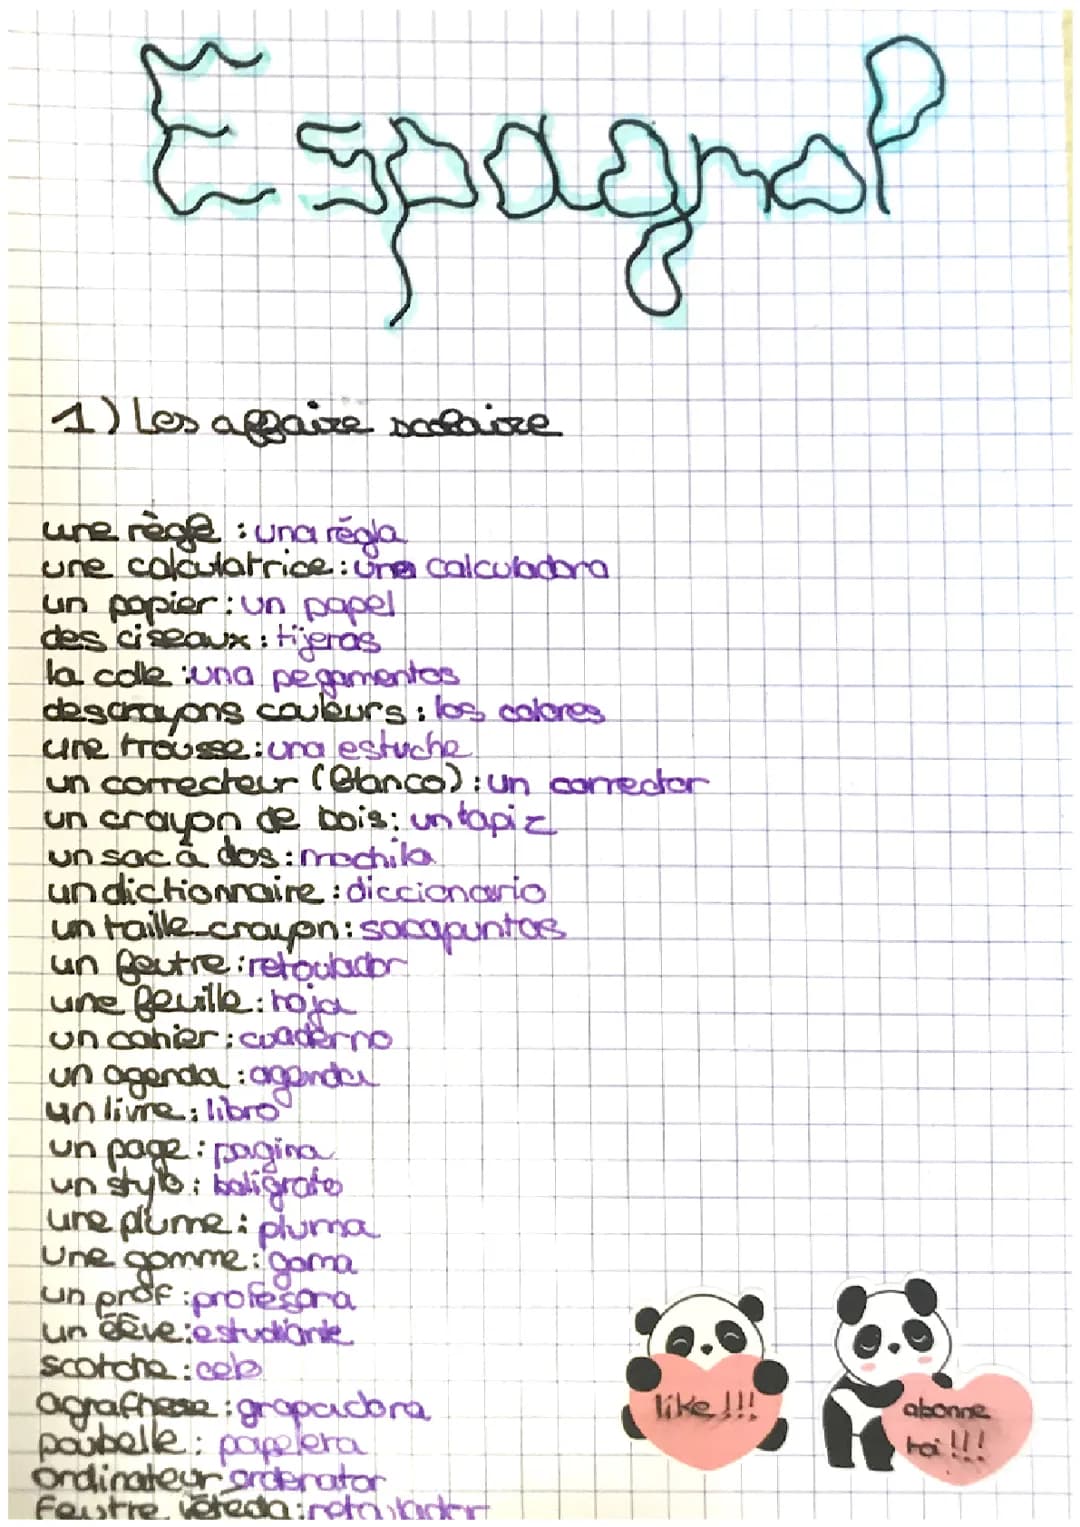 Espagnol
1) Les affaire scolaire
une règle : una régla
une calculatrice : una calculadora
un papier : un papel
des ciseaux : tijeras
la colle : una pegamentos
des crayons couleurs : los colores
une trousse : una estuche
un correcteur (Blanco) : un corrector
un crayon de bois : un tapiz
un sac à dos : mochila
un dictionnaire : diccionario
un taille-crayon : sacapuntas
un feutre : retoulador
une feuille : hoja
un cahier : cuaderno
un agenda : agenda
un livre : libro
un page : pagina
un stylo : boligrafo
une plume : pluma
une gomme : goma
un prof : profesora
un élève : estudiante
scotche : celo
agrafhese : grapadora
poubelle : papelera
ordinateur ordenator
Feutre : retoulador
like !!!
abonne
toi !!!